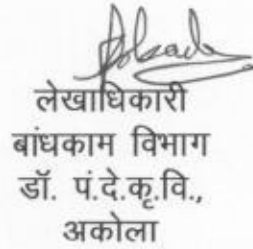 लेखाधिकारी
बांधकाम विभाग
डॉ. पं.दे.कृ.वि.,
अकोला